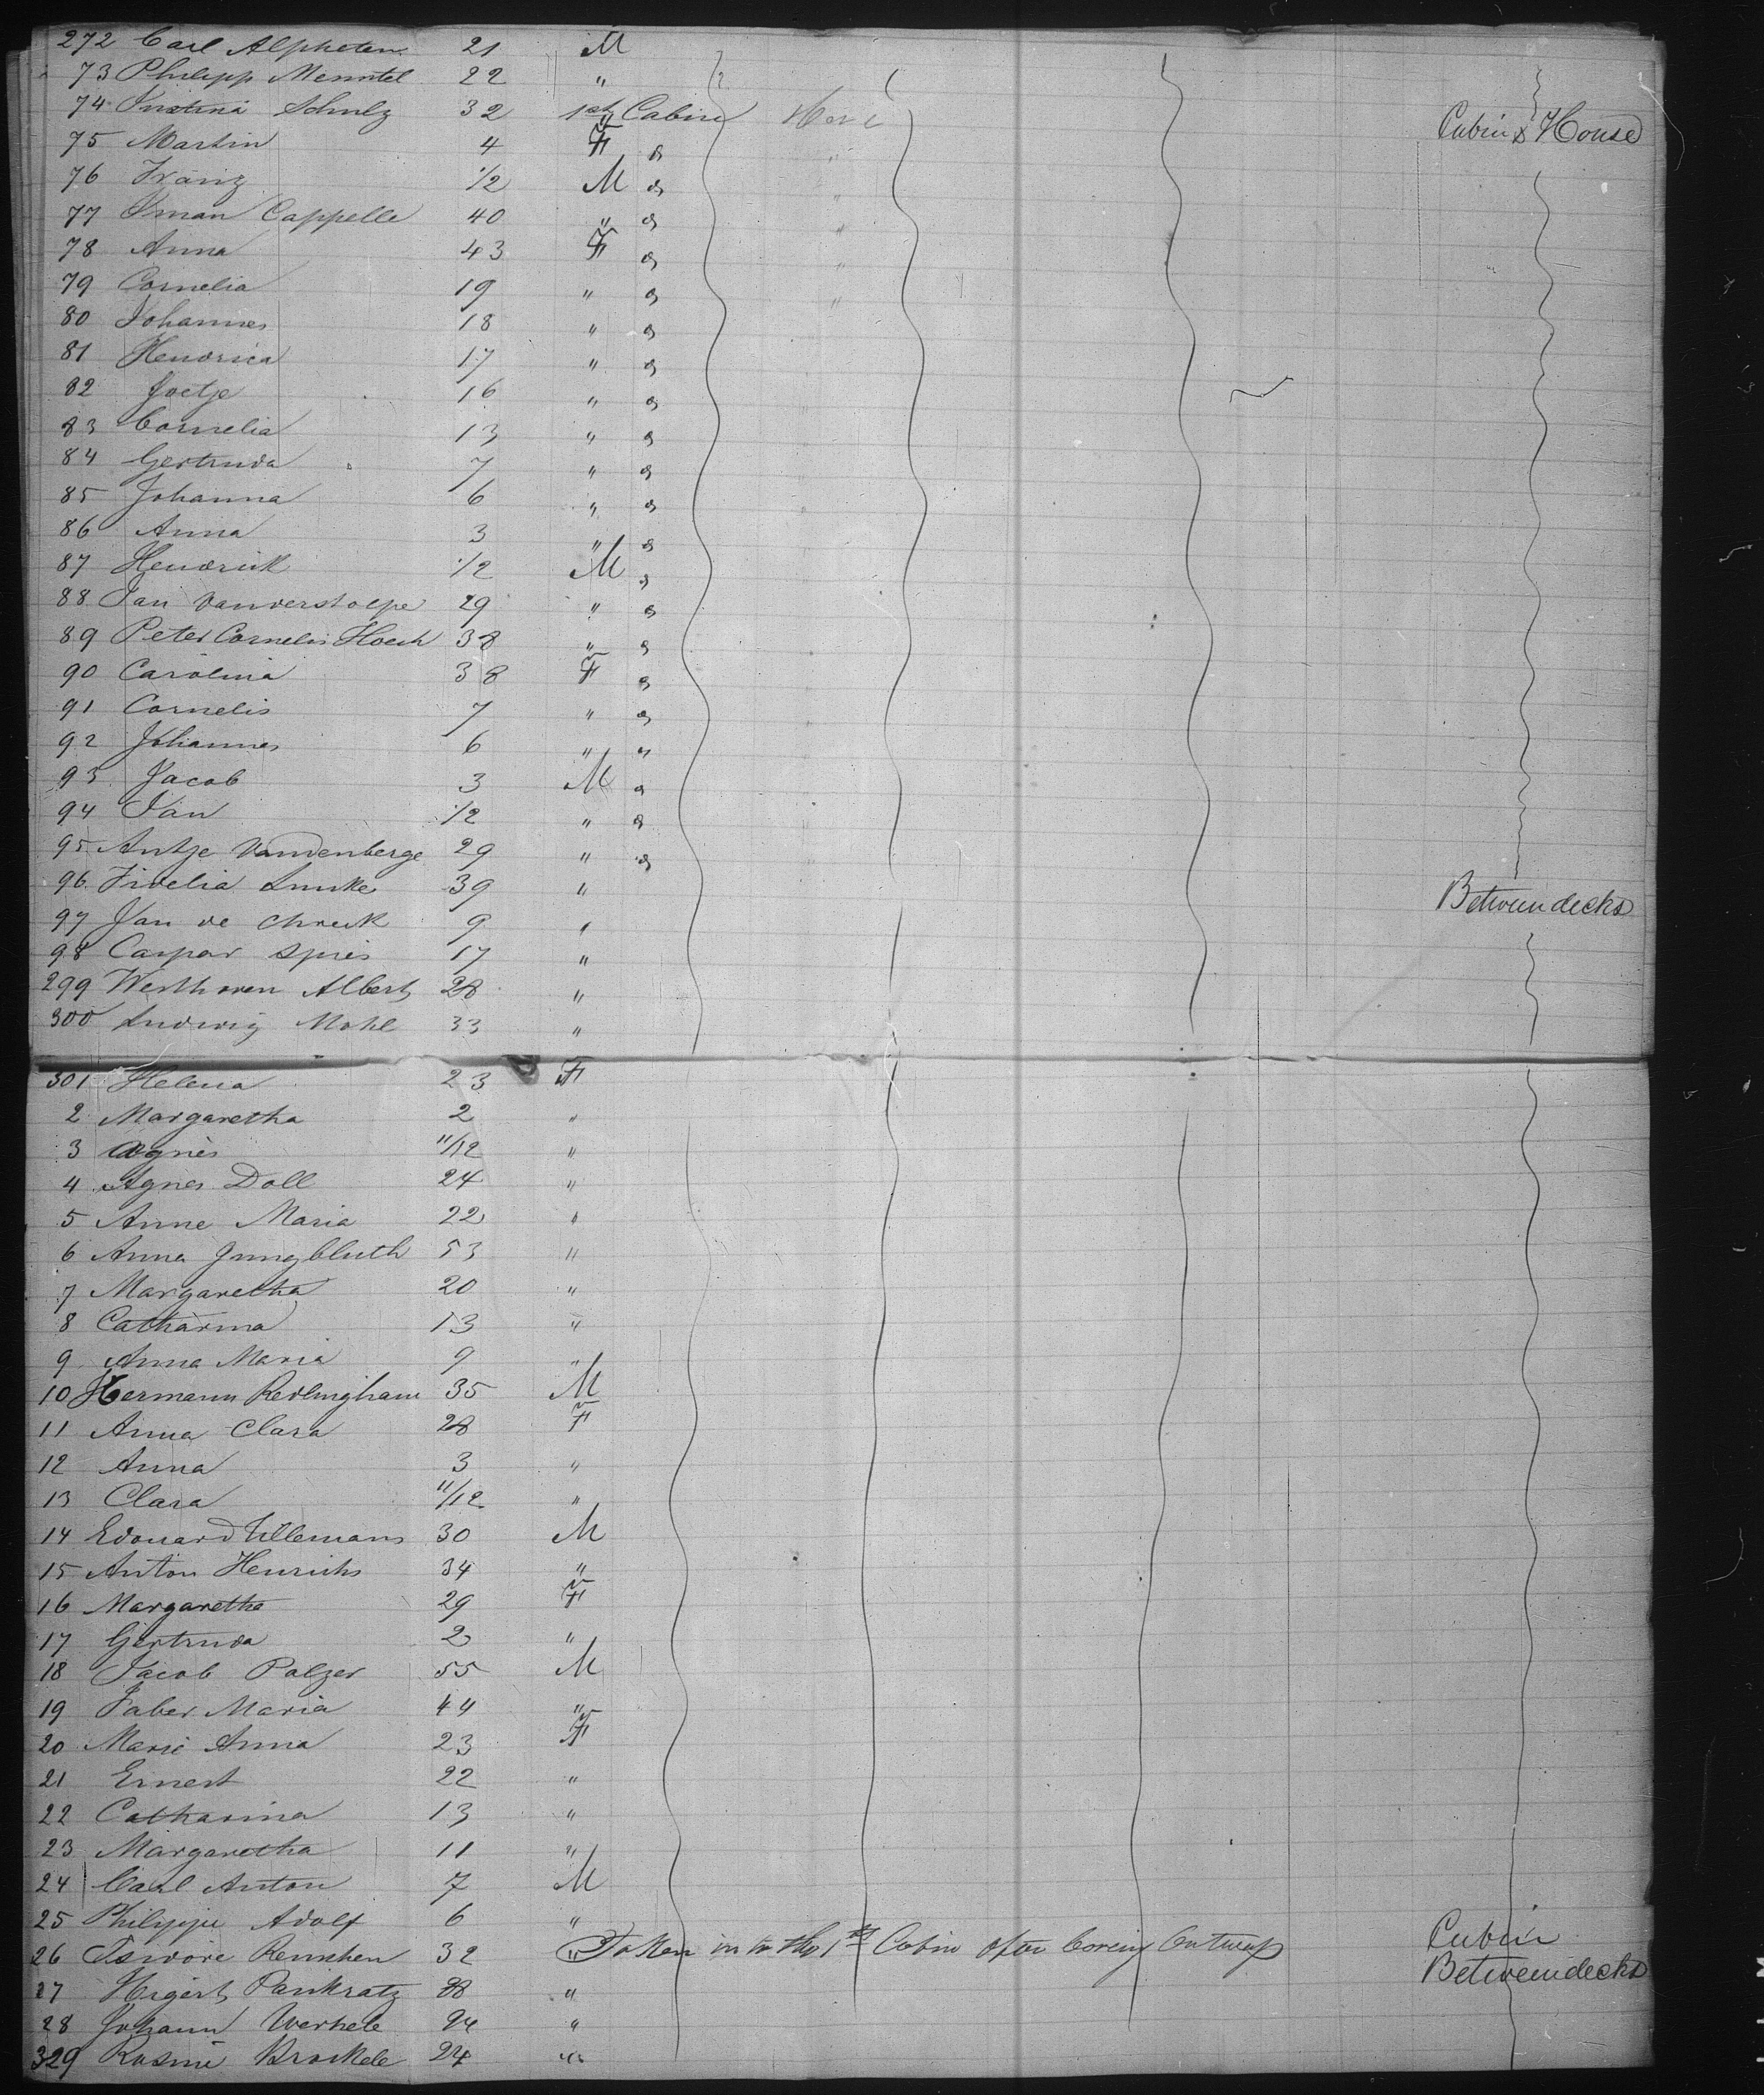 272 Carl Alpheten 21 M
73 Philipp Menntel 22 "
74 Justina Schulz 32 1st Cabin Cabin & House
75 Martin 4 F
76 Franz 1/2 M
77 Iman Cappelle 40 "
78 Anna 43 F
79 Cornelia 19 "
80 Johannes 18 "
81 Hendrica 17 "
82 Joetje 16 "
83 Cornelia 13 "
84 Gertruda 7 "
85 Johanna 6 "
86 Anna 3 "
87 Hendrik 1/2 M
88 Jan Vanderstolpe 29 "
89 Peter Cornelis Hoech 38 "
90 Carolina 38 F
91 Cornelis 7 "
92 Johannes 6 "
93 Jacob 3 M
94 Jan 1/2 "
95 Antje Vandenberge 29 "
96 Fidelia Lunke 39 " Betweendecks
97 Jan de 9 "
98 Caspar Spies 17 "
299 Westhoven Albert 28 "
300 Ludwig Mohl 33 "
301 Helena 23 F
2 Margaretha 2 "
3 Agnes 11/12 "
4 Agnes Doll 24 "
5 Anne Maria 22 "
6 Anna Jungbluth 53 "
7 Margaretha 20 "
8 Catharina 13 "
9 Anna Maria 9 "
10 Hermann Redlinghaus 35 M
11 Anna Clara 28 F
12 Anna 3 "
13 Clara 11/12 "
14 Edouard Ullemans 30 M
15 Anton Henrichs 34 "
16 Margaretha 29 F
17 Gertruda 2 "
18 Jacob Palzer 55 M
19 Faber Maria 44 "
20 Marie Anna 23 F
21 Ernest 22 "
22 Catharina 13 "
23 Margaretha 11 "
24 Carl Anton 7 M
25 Philippe Adolf 6 "
26 Isidore Renschen 32 " Taken in to the 1st Cabin after leaving Antwerp Cabin
27 Higert Pankratz 28 " Betweendecks
28 Johann Werkele 24 "
329 Rosine Brockele 24 "